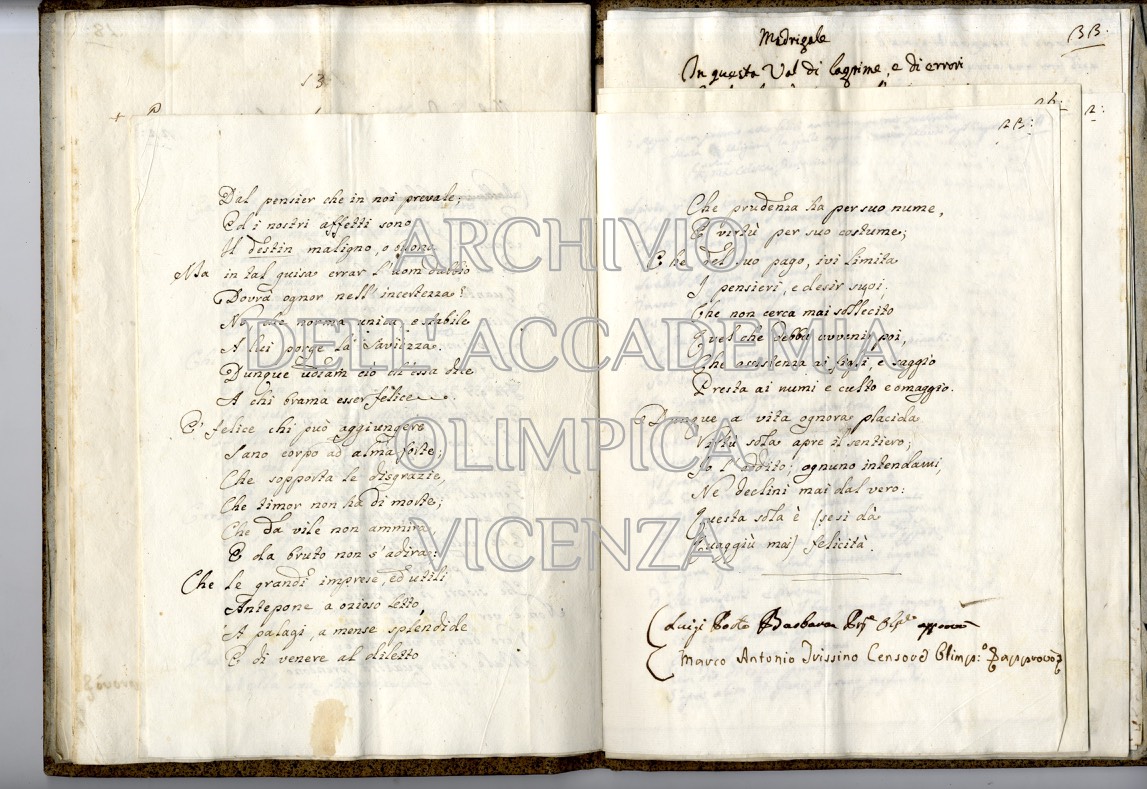 13.
Dal pensier che in noi prevale;
Ed i nostri affetti sono
Il destin maligno, o buono
Ma in tal guisa errar l'uom dubbio
Dovrà ognor nell'incertezza?
No che norma unica, e stabile
A lui porge la Saviezza.
Dunque udiam ciò ch'essa dice
A chi brama esser felice
E' felice chi può aggiungere
Sano corpo ad alma forte;
Che sopporta le disgrazie,
Che timor non ha di morte;
Che da vile non ammira,
E da bruto non s'adira:
Che le grandi imprese, ed utili
Antepone a ozioso letto,
A palagi, a mense splendide
E di venere al diletto
Madrigale
BB.
In questa Val di lagrime, e di errori
Che prudenza ha per suo nume,
E virtù per suo costume;
Che del suo pago, ivi limita
I pensieri, e desir suoi;
Che non cerca mai sollecito
Quel che debba avvenir poi,
Che assistenza ai figli, e saggio
Presta ai numi e culto e omaggio.
Dunque a vita ognora placida
Virtù sola apre il sentiero;
Io l'addito; ognuno intendami,
Ne declini mai dal vero:
Questa sola è (se si dà
Quaggiù mai) felicità.
Luigi Porto Barbaran
Marco Antonio Trissino Censore Olimp:º approvò
ARCHIVIO
DELL'ACCADEMIA
OLIMPICA
VICENZA